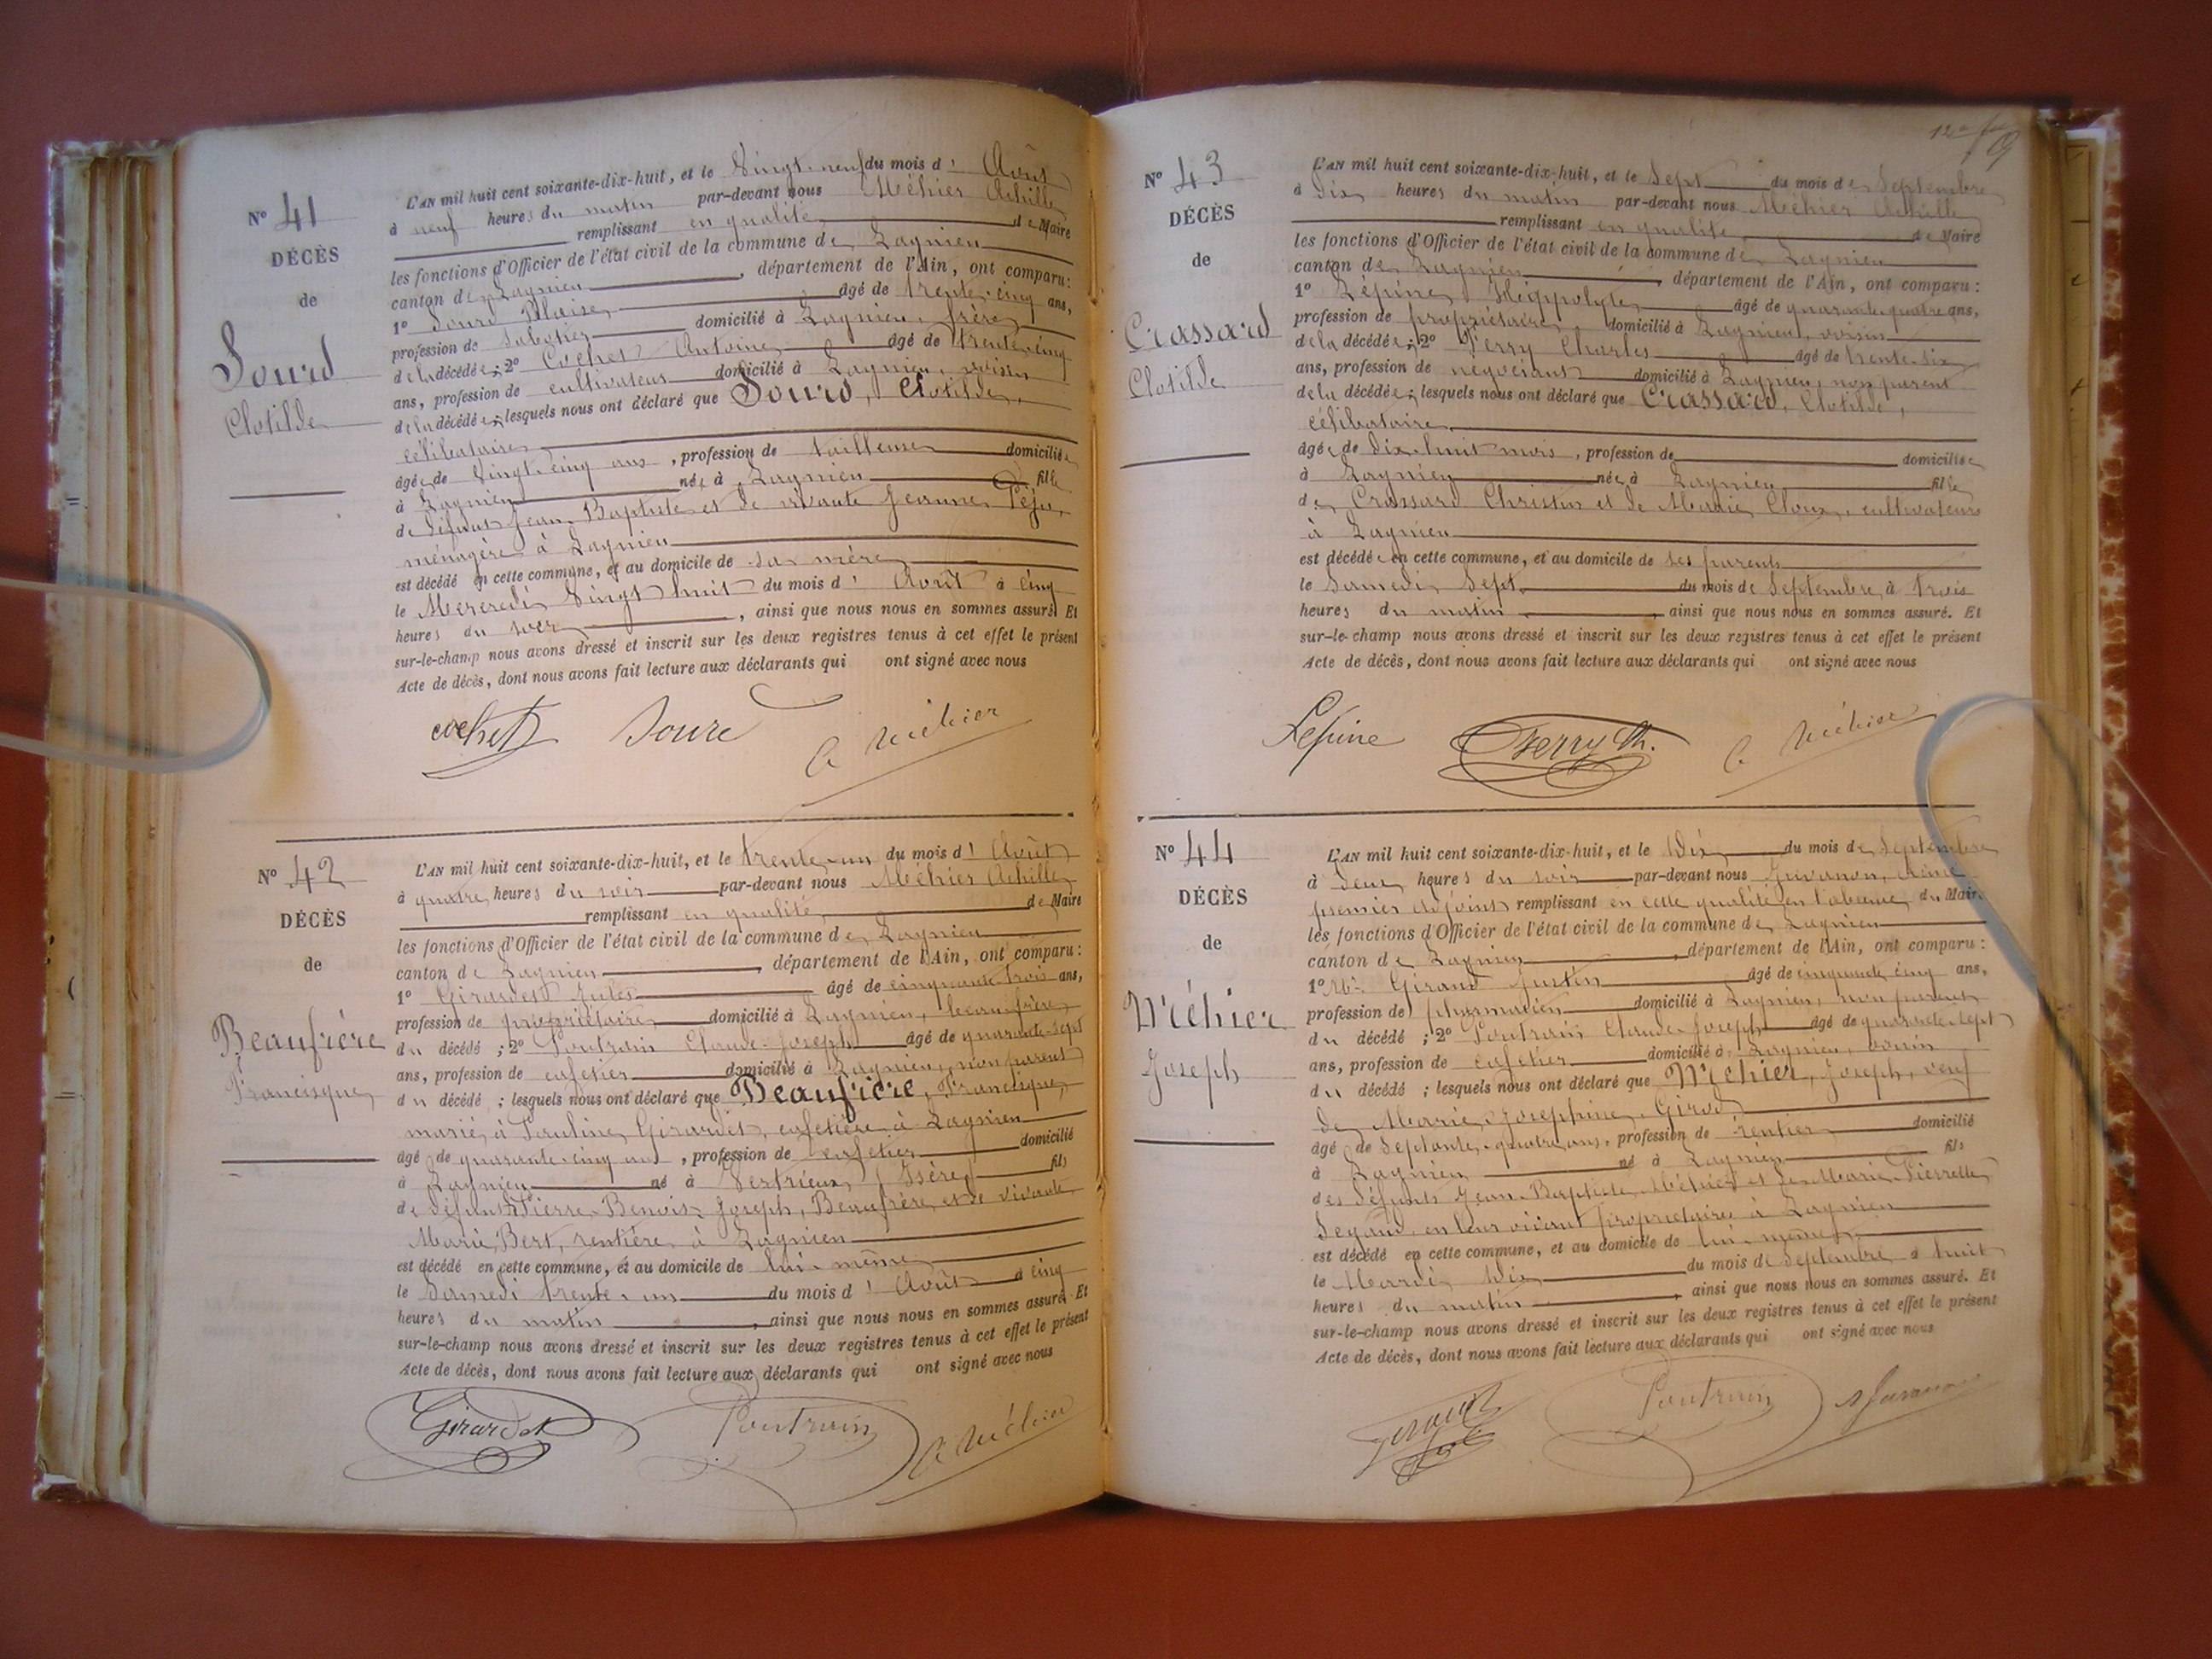 N° 41
DÉCÈS
de
Sourd
Clotilde
L'AN mil huit cent soixante-dix-huit, et le Vingt-neuf du mois d'Août
à neuf heures du matin par-devant nous Méhier Achille
remplissant en qualité de Maire
les fonctions d'Officier de l'état civil de la commune de Lagnieu
canton de Lagnieu, département de l'Ain, ont comparu:
1° Sourd Blaise âgé de trente-cinq ans,
profession de sabotier domicilié à Lagnieu, frère
de la décédée; 2° Cochet Antoine âgé de trente-cinq
ans, profession de cultivateur domicilié à Lagnieu, voisin
de la décédée; lesquels nous ont déclaré que Sourd, Clotilde,
célibataire
âgée de vingt-cinq ans, profession de tailleuse domiciliée
à Lagnieu née à Lagnieu fille
de défunt Jean-Baptiste et de vivante Jeanne Péju,
ménagère à Lagnieu
est décédé en cette commune, et au domicile de sa mère
le Mercredi Vingt huit du mois d'Août à cinq
heures du soir, ainsi que nous nous en sommes assuré. Et
sur-le-champ nous avons dressé et inscrit sur les deux registres tenus à cet effet le présent
Acte de décès, dont nous avons fait lecture aux déclarants qui ont signé avec nous
cochet Sourd A Méhier
N° 42
DÉCÈS
de
Beaufrère
Francisque
L'AN mil huit cent soixante-dix-huit, et le trente-un du mois d'Août
à quatre heures du soir par-devant nous Méhier Achille
remplissant en qualité de Maire
les fonctions d'Officier de l'état civil de la commune de Lagnieu
canton de Lagnieu, département de l'Ain, ont comparu:
1° Girardet Jules âgé de cinquante-trois ans,
profession de propriétaire domicilié à Lagnieu, beau-frère
du décédé; 2° Poutrain Claude-Joseph âgé de quarante-sept
ans, profession de cafetier domicilié à Lagnieu, non parent
du décédé; lesquels nous ont déclaré que Beaufrère, Francisque,
marié à Pauline Girardet, cafetière à Lagnieu
âgé de quarante-cinq ans, profession de cafetier domicilié
à Lagnieu né à Vertrieux (Isère) fils
de défunt Pierre-Benoit-Joseph, Beaufrère et de vivante
Marie Bert, rentière à Lagnieu
est décédé en cette commune, et au domicile de lui-même
le Samedi trente-un du mois d'Août à cinq
heures du matin, ainsi que nous nous en sommes assuré. Et
sur-le-champ nous avons dressé et inscrit sur les deux registres tenus à cet effet le présent
Acte de décès, dont nous avons fait lecture aux déclarants qui ont signé avec nous
Girardet Poutrain A Méhier
N° 43
DÉCÈS
de
Crassard
Clotilde
L'AN mil huit cent soixante-dix-huit, et le Sept du mois de Septembre
à Dix heures du matin par-devant nous Méhier Achille
remplissant en qualité de Maire
les fonctions d'Officier de l'état civil de la commune de Lagnieu
canton de Lagnieu, département de l'Ain, ont comparu:
1° Lépine Hippolyte âgé de quarante-quatre ans,
profession de propriétaire domicilié à Lagnieu, voisin
de la décédée; 2° Ferry Charles âgé de trente-six
ans, profession de négociant domicilié à Lagnieu, non parent
de la décédée; lesquels nous ont déclaré que Crassard, Clotilde,
célibataire
âgée de Dix-huit mois, profession de domiciliée
à Lagnieu née à Lagnieu fille
de Crassard Christin et de Marie cultivateurs
à Lagnieu
est décédée en cette commune, et au domicile de ses parents
le Samedi Sept du mois de Septembre à trois
heures du matin, ainsi que nous nous en sommes assuré. Et
sur-le-champ nous avons dressé et inscrit sur les deux registres tenus à cet effet le présent
Acte de décès, dont nous avons fait lecture aux déclarants qui ont signé avec nous
Lépine Ferry Ch. A Méhier
N° 44
DÉCÈS
de
Méhier
Joseph
L'AN mil huit cent soixante-dix-huit, et le Dix du mois de Septembre
à Deux heures du soir par-devant nous
premier adjoint remplissant en cette qualité en l'absence du Maire
les fonctions d'Officier de l'état civil de la commune de Lagnieu
canton de Lagnieu, département de l'Ain, ont comparu:
1° Mr Giraud Justin âgé de cinquante cinq ans,
profession de pharmacien domicilié à Lagnieu, non parent
du décédé; 2° Poutrain Claude-Joseph âgé de quarante-sept
ans, profession de cafetier domicilié à Lagnieu, voisin
du décédé; lesquels nous ont déclaré que Méhier, Joseph, veuf
de Marie-Josephine Girod
âgé de Septante-quatre ans, profession de rentier domicilié
à Lagnieu né à Lagnieu fils
des défunts Jean-Baptiste Méhier et de Marie-Pierrette
Segaud, en leur vivant propriétaires à Lagnieu
est décédé en cette commune, et au domicile de lui-même
le Mardi Dix du mois de Septembre à huit
heures du matin, ainsi que nous nous en sommes assuré. Et
sur-le-champ nous avons dressé et inscrit sur les deux registres tenus à cet effet le présent
Acte de décès, dont nous avons fait lecture aux déclarants qui ont signé avec nous
Giraud Poutrain